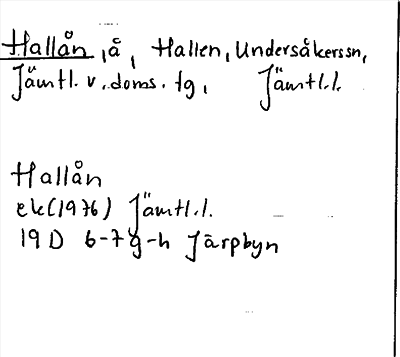 Hallån, å, Hallen, Undersåkerssn,
Jämtl. v. doms. tg, Jämtl.l.
Hallån
ek(1976) Jämtl.l.
19D 6-7g-h Järpbyn